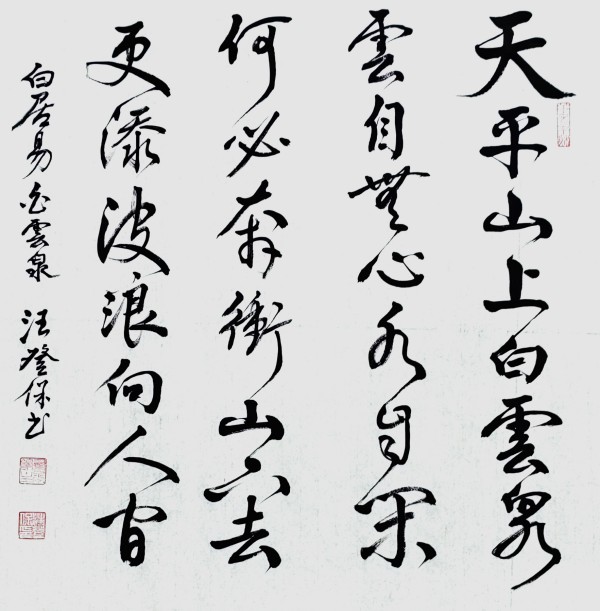 天平山上白雲泉
雲自無心水自閑
何必奔衝山下去
更添波浪向人間
白居易白雲泉 汪登保书